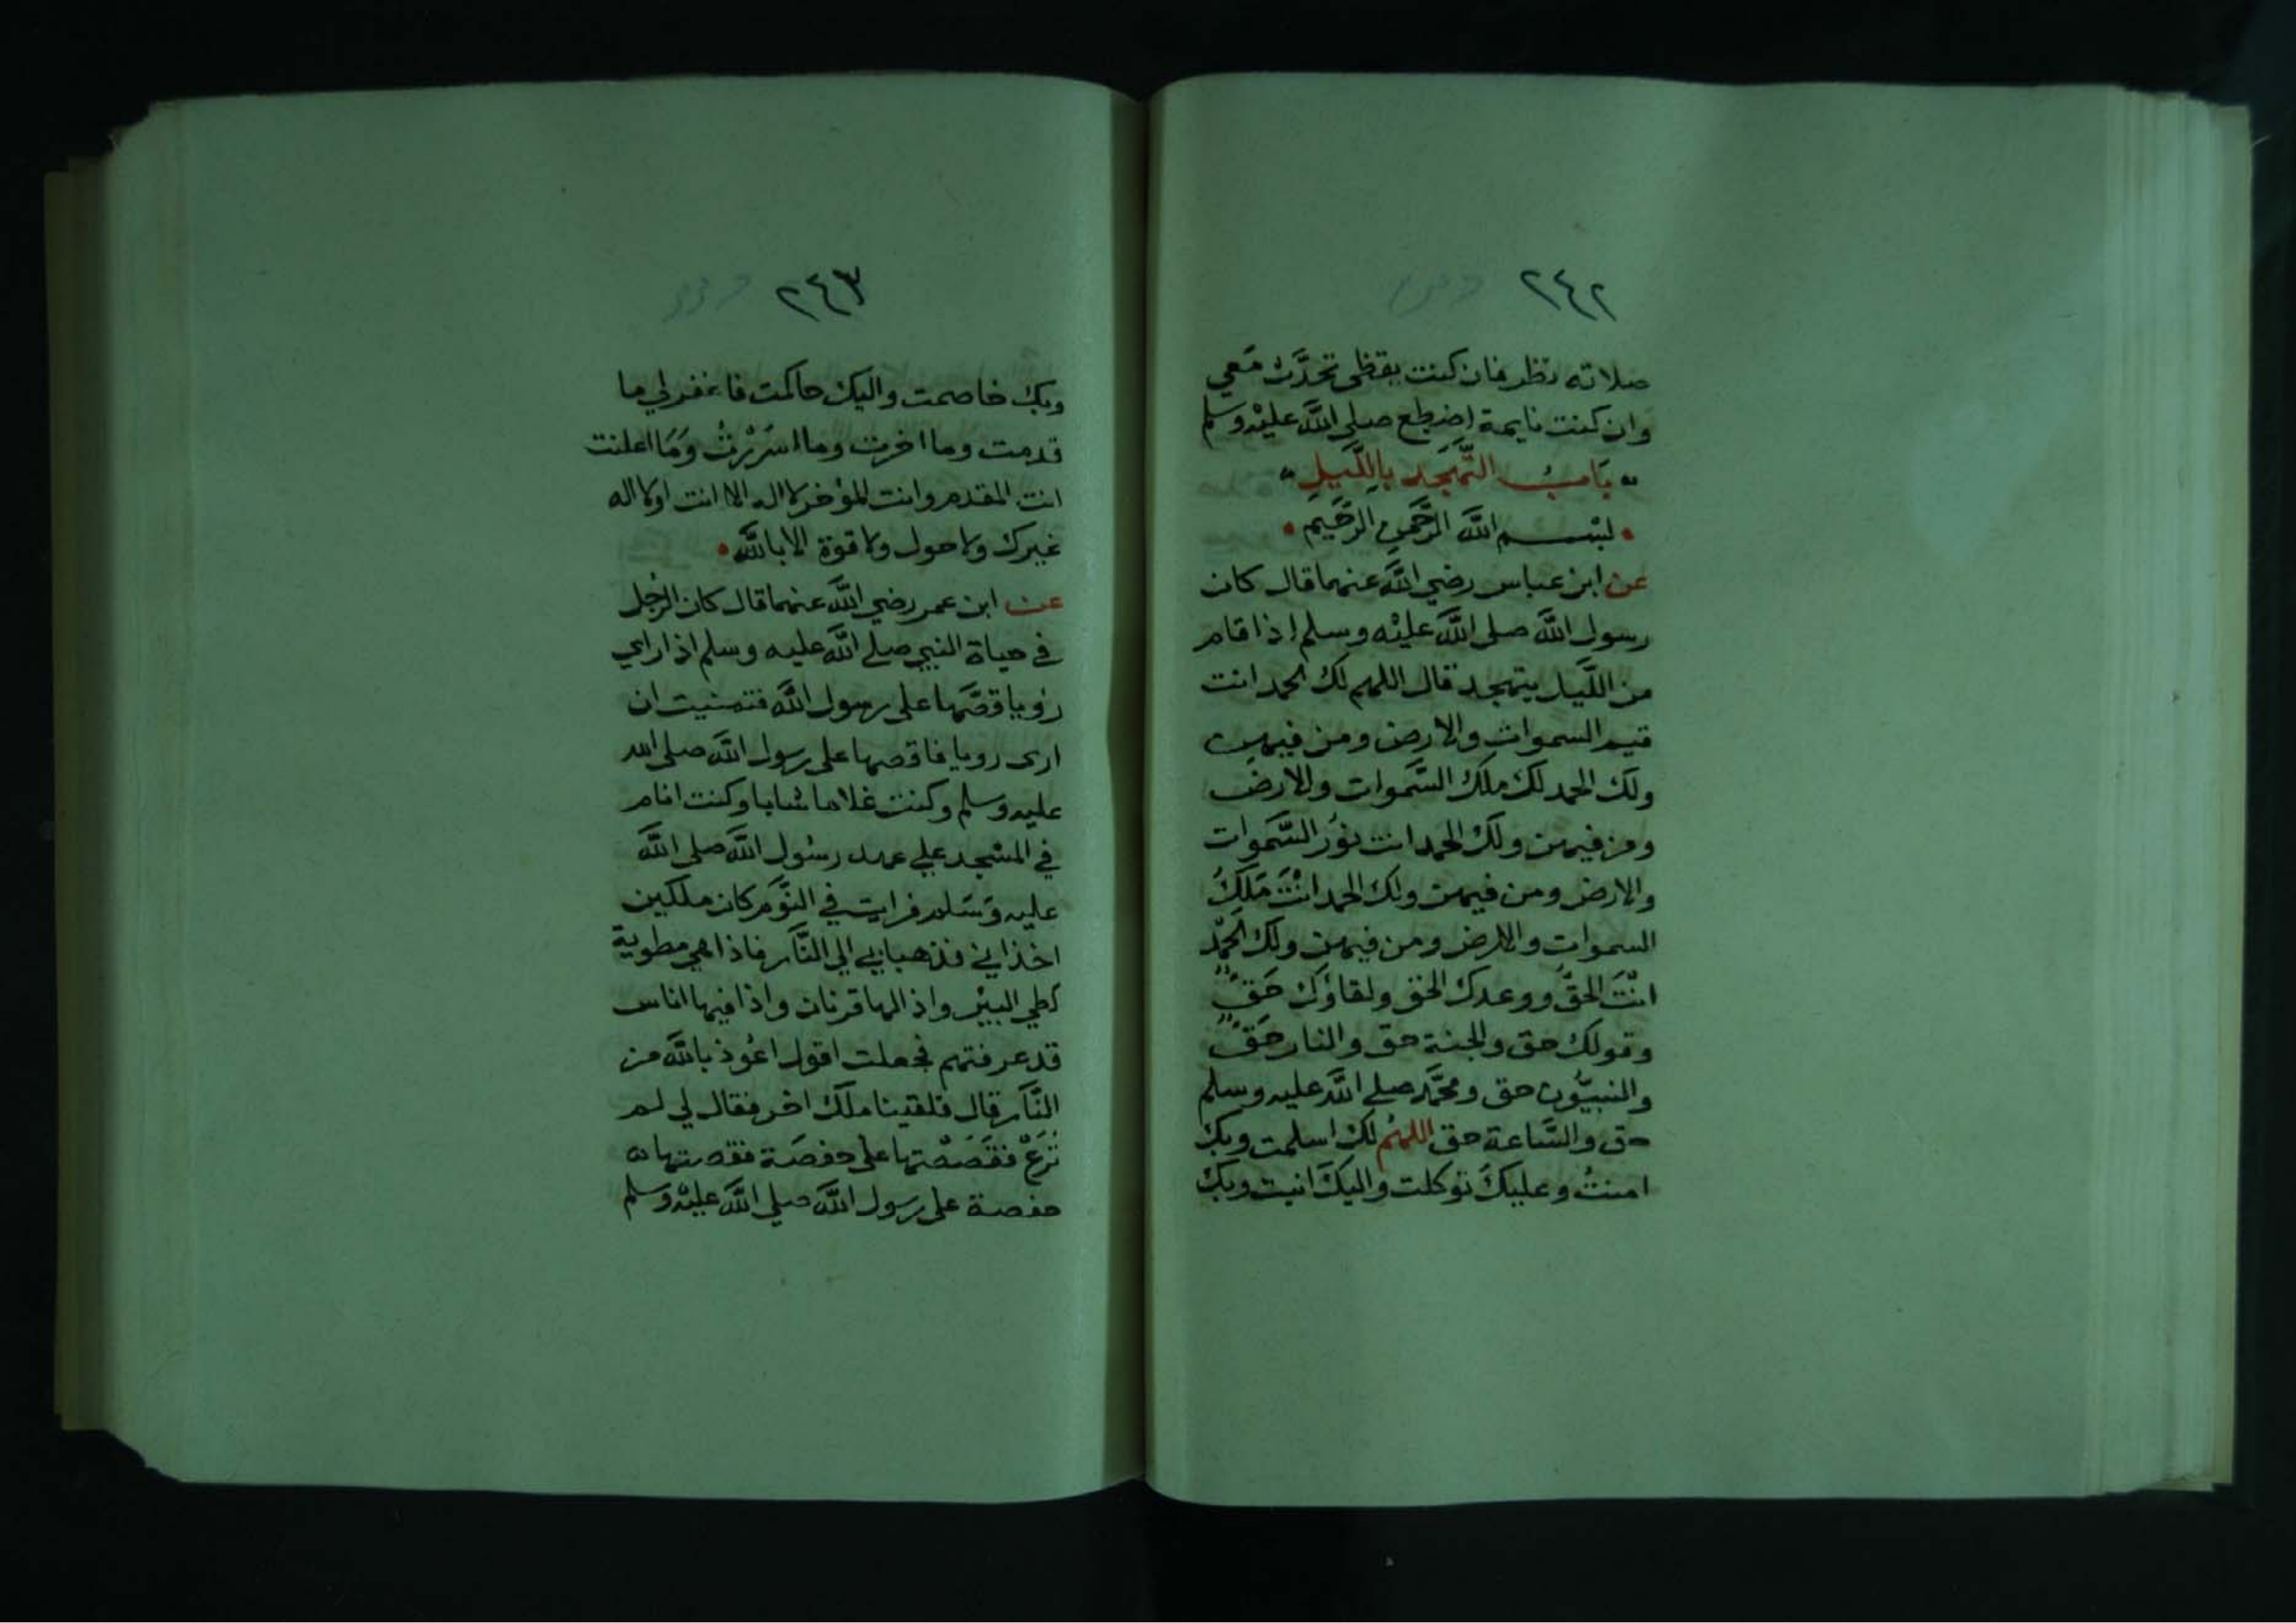 ٢٤٢
صلاته نظر فان كنت يقظى تحدَّث مَعي
وان كنت نايمة اضطجع صلى اللَّه عليْه وسلم
بَابُ التَّهَجَدِ بِاللَّيلِ
لبسم اللَّه الرَّحمنِ الرَّحَيم
عن ابن عباس رضي اللَّه عنهما قال كان
رسول اللَّه صلى اللَّه عليْه وسلم اذا قام
من اللَّيل يتهجد قال اللهم لك الحمد انت
قيم السموات والارض ومن فيهن
ولك الحمد لك ملك السَّموات والارض
ومن فيهن ولك الحمد انت نوُر السَّموات
والارض ومن فيهن ولك الحمد انْتَ مَلِكُ
السموات والارض ومن فيهن ولك الحَمْد
انْتَ الحقُّ ووعدك الحق ولقاؤك حَقٌ
وقولك حق والجنة حق والنار حَقٌ
والنبيُّون حق ومحمَّد صلى اللَّه عليه وسلم
حق والسَّاعة حق اللهُم لك اسلمت وبك
امنتُ وعليكَ توكلت واليكَ انبت وبك
٢٤٣
وبك خاصمت واليك حاكمت فاغفر لي ما
قدمت وما اخرت وما اسْرَرْتُ وَمَا اعلنت
انت المقدم وانت المؤخر لا اله الا انت اولا اله
غيرك ولا حول ولا قوة الا باللَّه
عن ابن عمر رضي اللَّه عنهما قال كان الرَّجُل
في حياة النبي صلى اللَّه عليه وسلم اذا راي
رؤيا قصَّها على رسول اللَّه فتمنيت ان
ارى رويا فاقصها على رسول اللَّه صلى الله
عليه وسلم وكنت غلاما شابا وكنت انام
في المسْجد علي عهد رسُول اللَّه صلى اللَّه
عليه وَسَلم فرايت في النَّوْم كان ملكين
اخذاني فذهبا بي الي النَّار فاذا هي مطوية
كطي البيْر واذا لها قرنان واذا فيها اناس
قد عرفتهم فجعلت اقول اعُوذ باللَّه من
النَّار قال فلقينا ملك اخر فقال لي لم
تُرَعْ فقَصَصْتها على حفصَة فقصتها
حفصة على رسول اللَّه صلي اللَّه عليْه وسلم